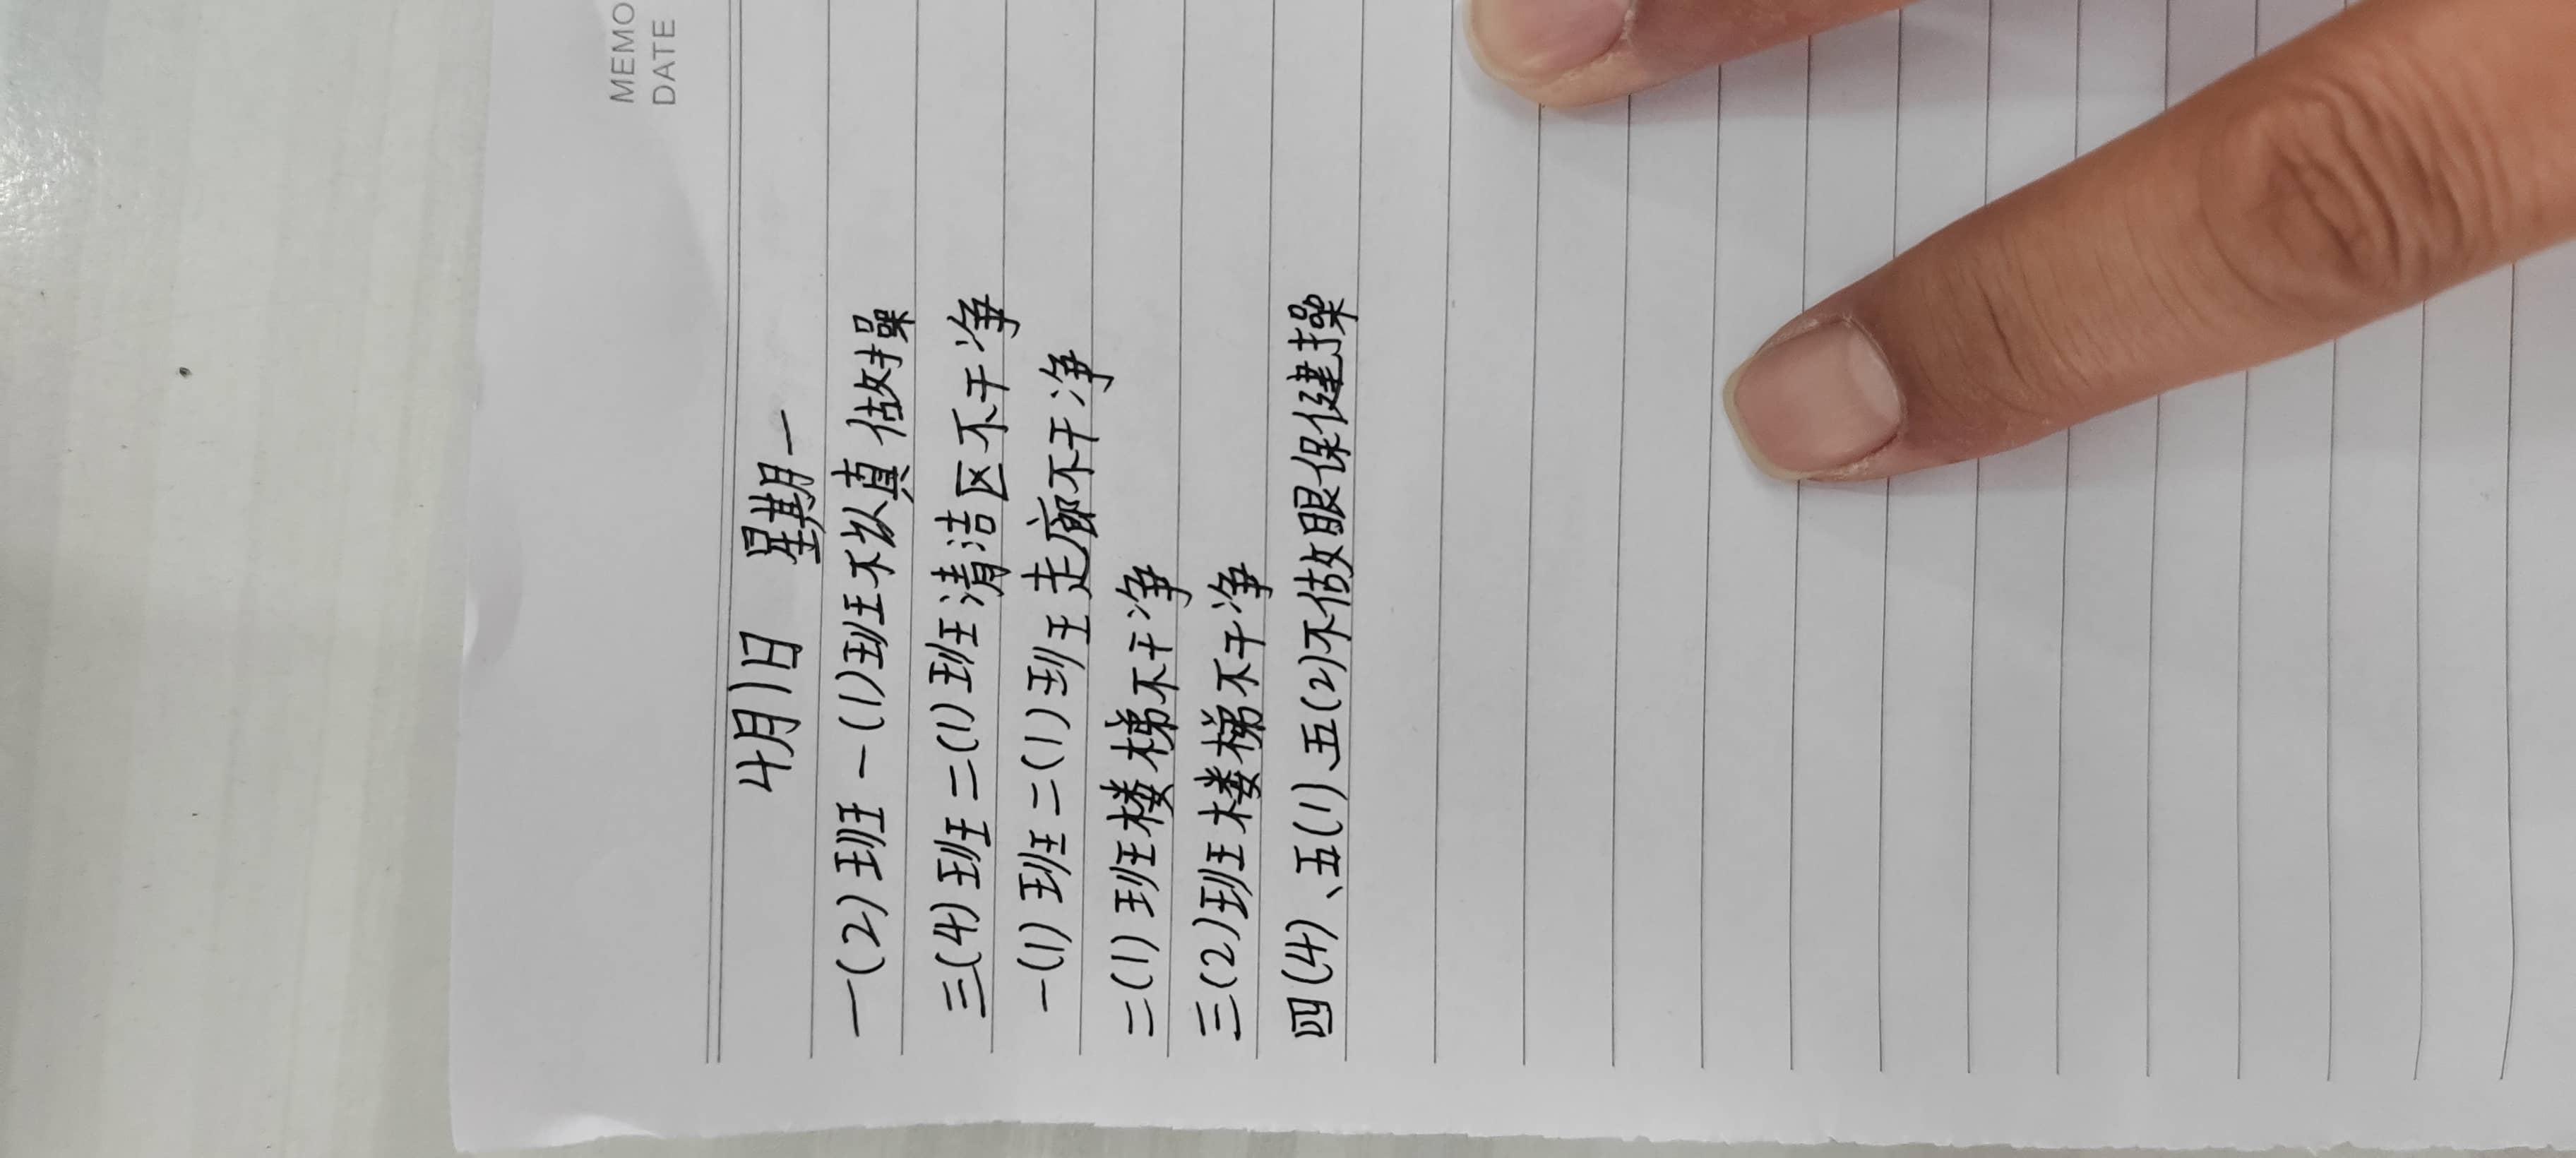 MEMO
DATE
4月1日 星期一
一(2)班 一(1)班不认真做操
三(4)班二(1)班清洁区不干净
一(1)班二(1)班走廊不干净
二(1)班楼梯不干净
三(2)班楼梯不干净
四(4)、五(1)、五(2)不做眼保健操